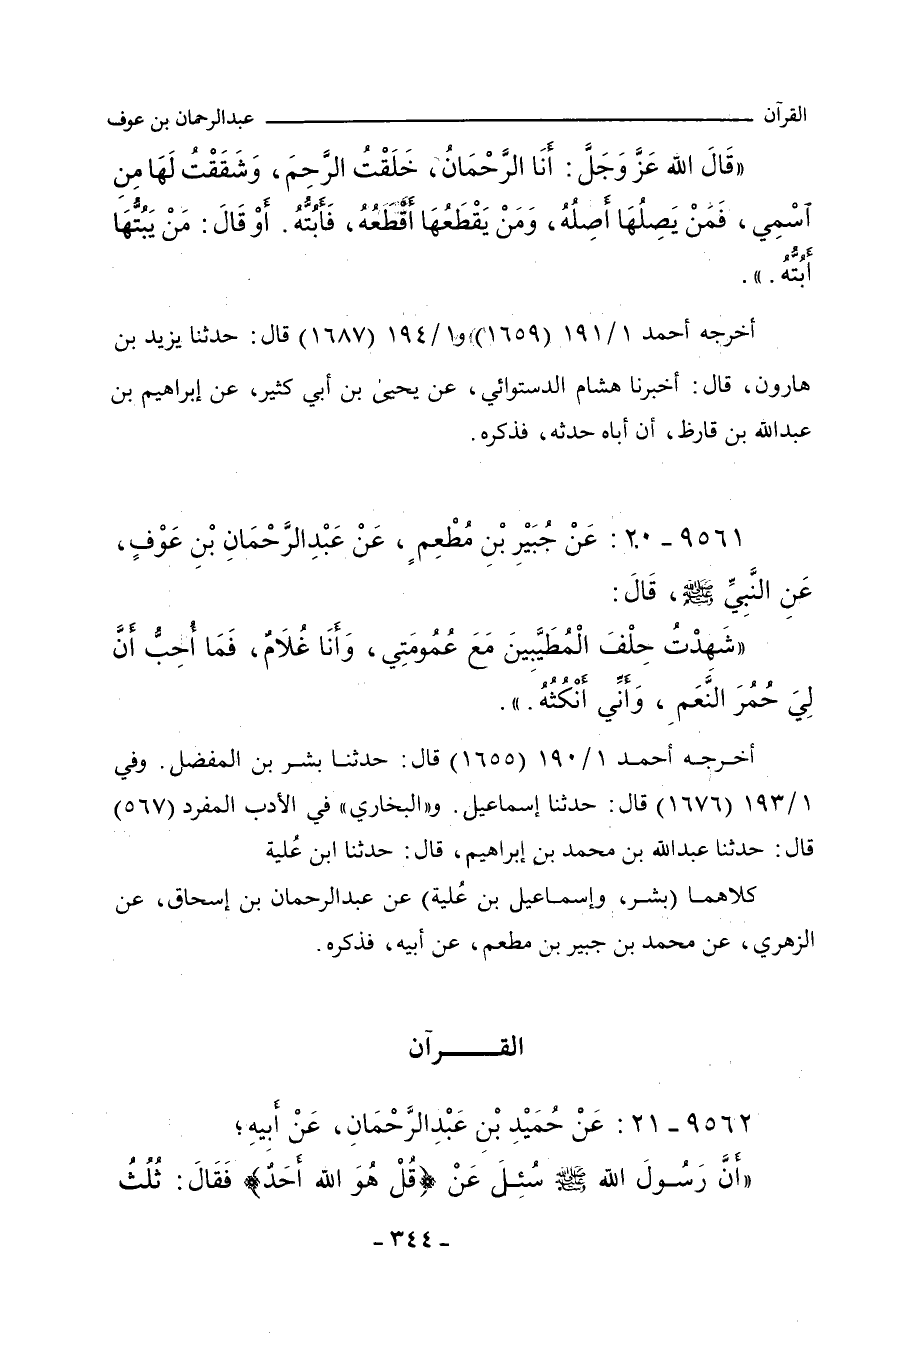 القرآن ــــــــ عبدالرحمان بن عوف
«قَالَ الله عَزَّ وَجَلَّ : أَنَا الرَّحْمَانُ، خَلَقْتُ الرَّحِمَ، وَشَقَقْتُ لَهَا مِنِ
ٱسْمِي، فَمَنْ يَصِلُهَا أَصِلُهُ، وَمَنْ يَقْطَعُهَا أَقْطَعُهُ، فَأَبُتُّهُ. أَوْ قَالَ : مَنْ يَبُتُّهَا
أَبُتُّهُ . ».
أخرجه أحمد ١/ ١٩١ (١٦٥٩) و١/ ١٩٤ (١٦٨٧) قال : حدثنا يزيد بن
هارون، قال : أخبرنا هشام الدستوائي، عن يحيىٰ بن أبي كثير، عن إبراهيم بن
عبدالله بن قارظ، أن أباه حدثه، فذكره.
٩٥٦١ - ٢٠ : عَنْ جُبَيْرِ بْنِ مُطْعِمٍ، عَنْ عَبْدِالرَّحْمَانِ بْنِ عَوْفٍ،
عَنِ النَّبِيِّ ﷺ، قَالَ :
«شَهِدْتُ حِلْفَ الْمُطَيَّبِينَ مَعَ عُمُومَتِي، وَأَنَا غُلَامٌ، فَمَا أُحِبُّ أَنَّ
لِيَ حُمُرَ النَّعَمِ، وَأَنِّي أَنْكُثُهُ. ».
أخرجه أحمد ١/ ١٩٠ (١٦٥٥) قال : حدثنا بشر بن المفضل. وفي
١/ ١٩٣ (١٦٧٦) قال : حدثنا إسماعيل. و«البخاري» في الأدب المفرد (٥٦٧)
قال : حدثنا عبدالله بن محمد بن إبراهيم، قال : حدثنا ابن عُلية
كلاهما (بشر، وإسماعيل بن عُلية) عن عبدالرحمان بن إسحاق، عن
الزهري، عن محمد بن جبير بن مطعم، عن أبيه، فذكره.
القـــــرآن
٩٥٦٢ - ٢١ : عَنْ حُمَيْدِ بْنِ عَبْدِالرَّحْمَانِ، عَنْ أَبِيهِ؛
«أَنَّ رَسُولَ الله ﷺ سُئِلَ عَنْ ﴿قُلْ هُوَ الله أَحَدٌ﴾ فَقَالَ : ثُلُثُ
- ٣٤٤ -